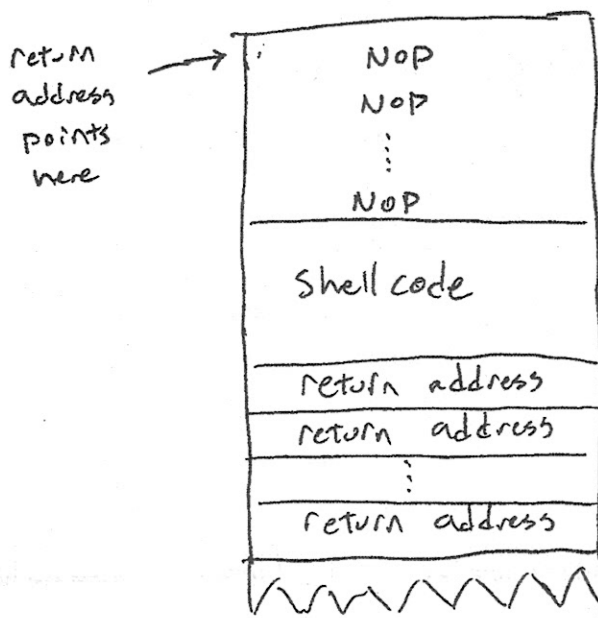 return
address
points
here
NOP
NOP
NOP
Shell code
return address
return address
return address